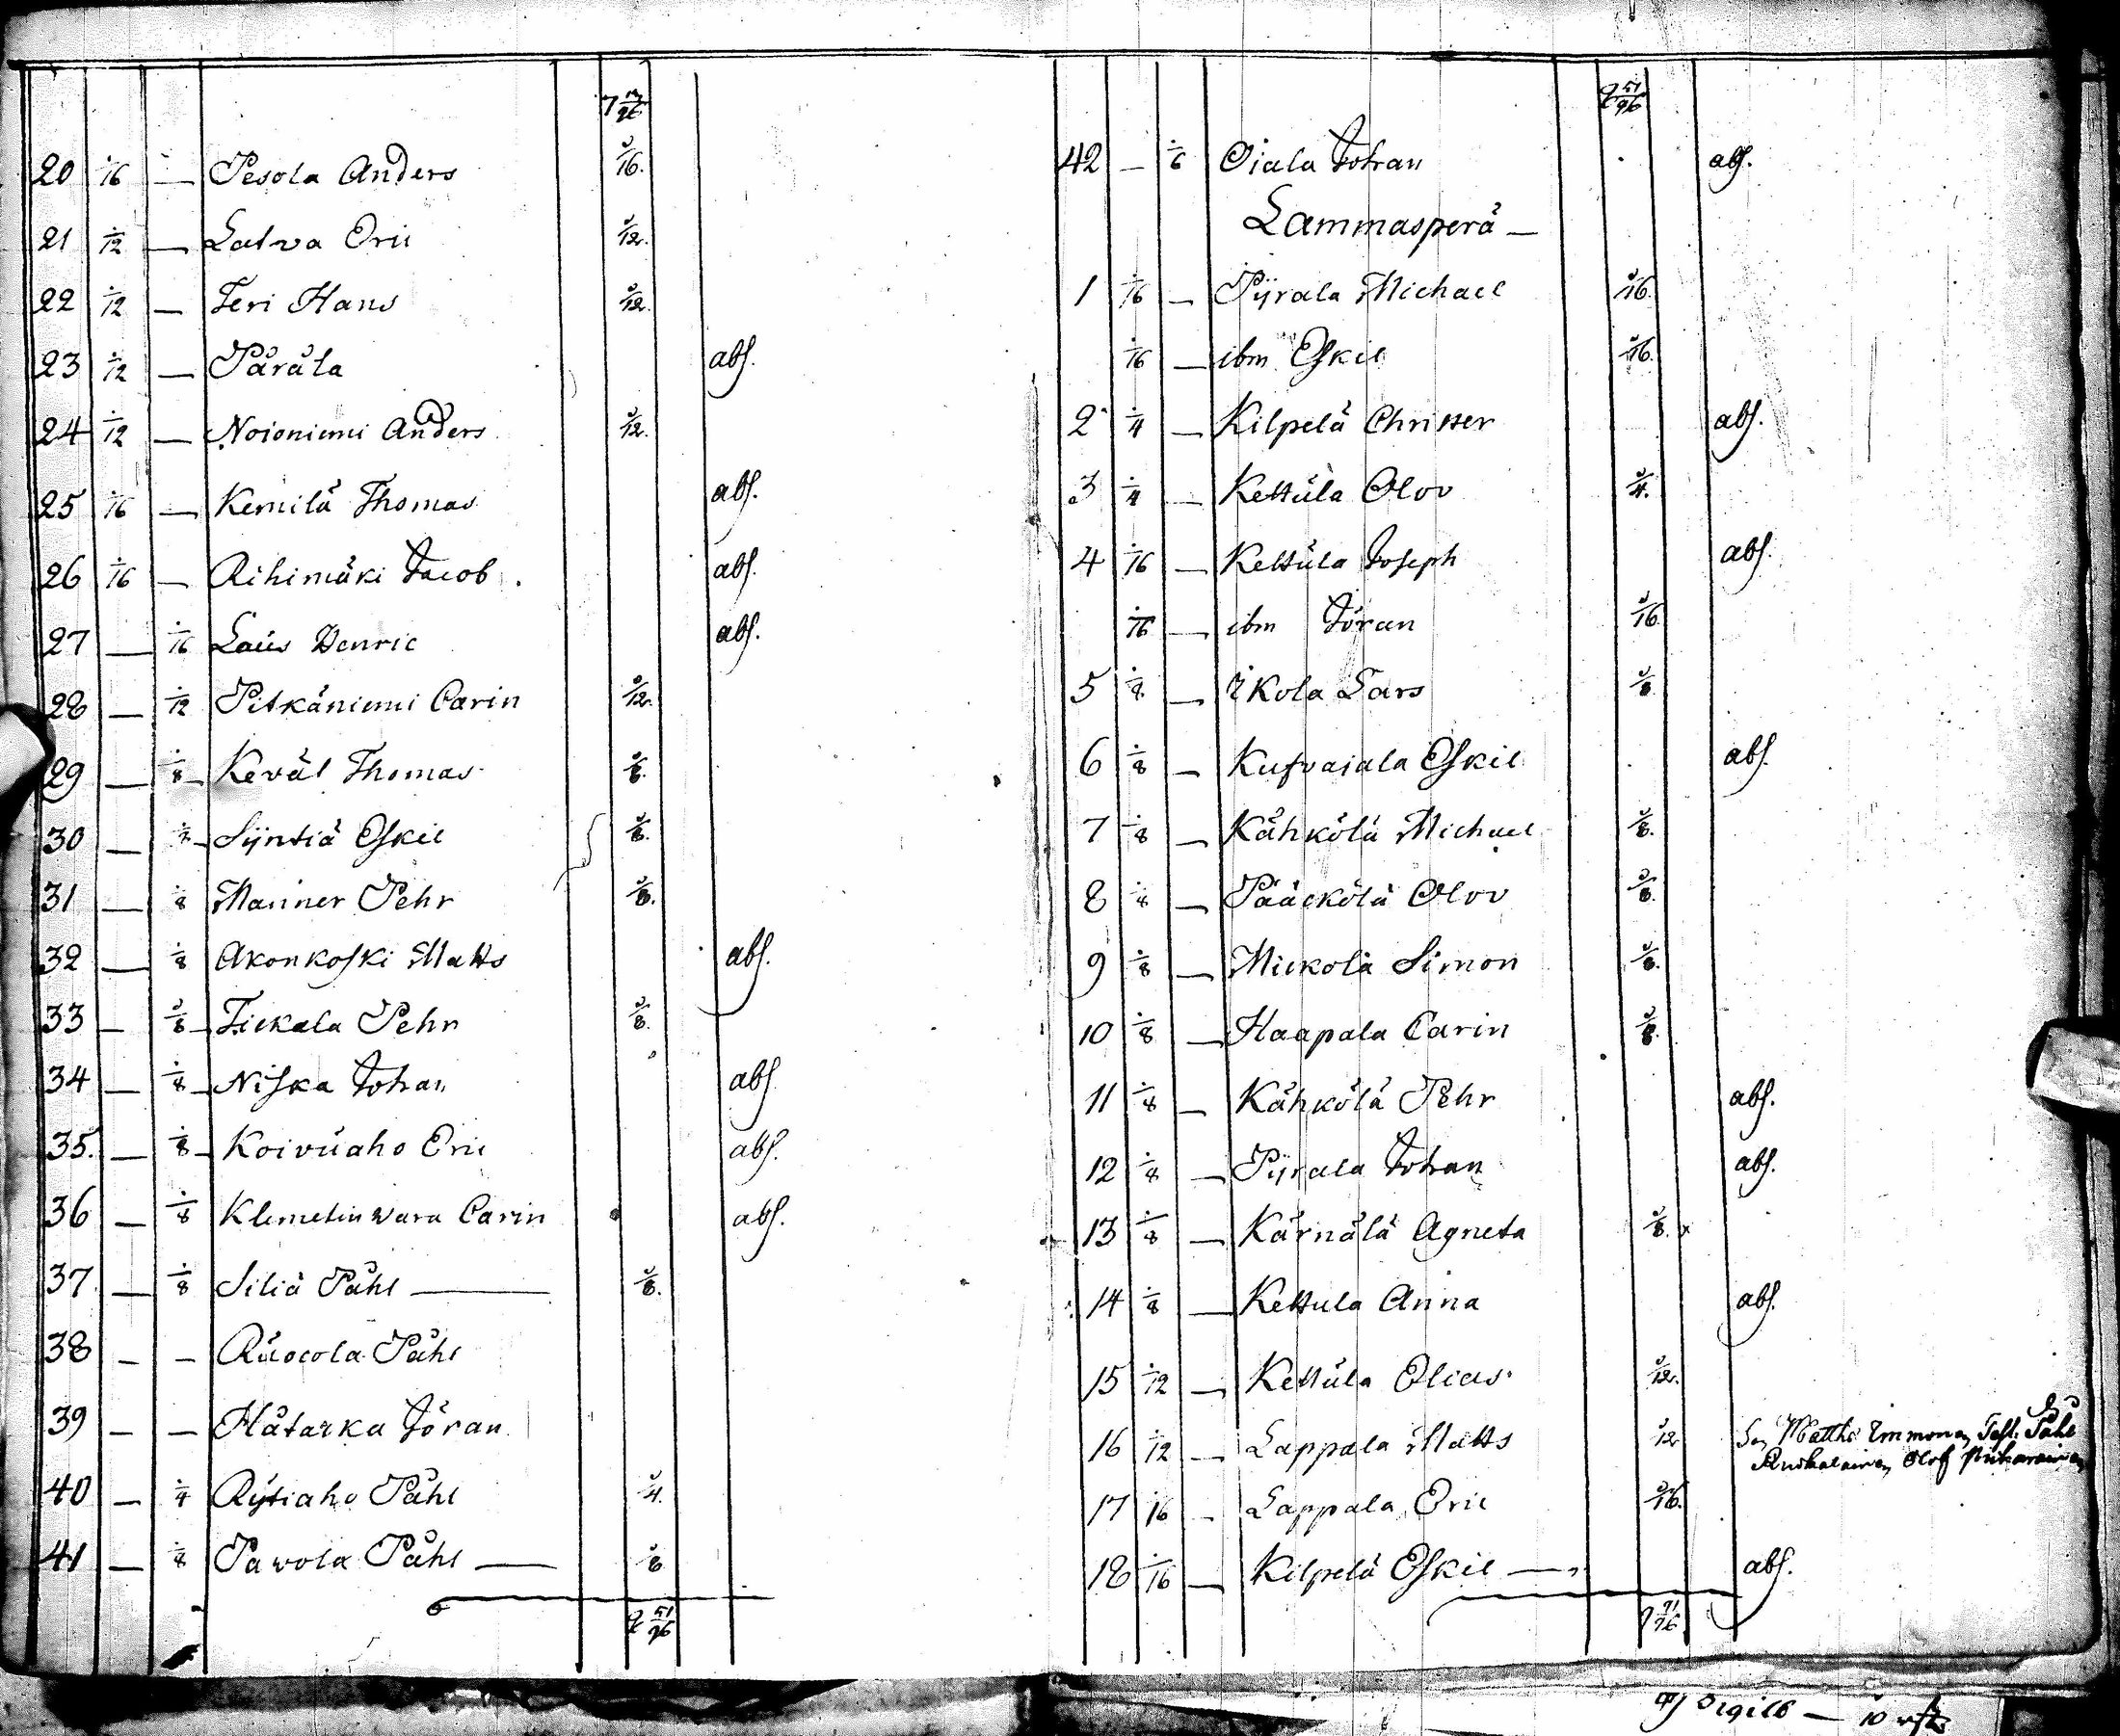 20 1/16 — Pesola Anders 1/16.
21 1/12 — Latva Eric 1/12.
22 1/12 — Teri Hans 1/12.
23 1/12 — Päräla abs.
24 1/12 — Noioniemi Anders 1/12.
25 1/16 — Kemilä Thomas abs.
26 1/16 — Rihimäki Jacob. abs.
27 — 1/16 Henric abs.
28 — 1/12 Pitkäniemi Carin 1/12.
29 — 1/8 Keväl Thomas 1/8.
30 — Syntiä Eskil 1/8.
31 — 1/8 Manner Pehr 1/8.
32 — 1/8 Akonkoski Matts abs.
33 — 1/8 Tickala Pehr 1/8.
34 — 1/8 Niska Johan abs.
35. — 1/8 Koivuaho Eric abs.
36 — 1/8 Klemetinwara Carin abs.
37 — 1/8 Siliä Påhl — 1/8.
38 — — Ruocola Påhl
39 — — Hätarka Jöran
40 — 1/4 Rytiaho Påhl 1/4.
41 — 1/8 Pawola Påhl — 1/8
51/96
51/96
42 — 1/6 Oiala Johan abs.
Lammasperä —
1 1/16 — Pyrala Michael 1/16.
1/16 — ibm Eskil 1/16.
2 1/4 — Kilpelä Christer abs.
3 1/4 — Kettula Olov 1/4.
4 1/16 — Kettula Joseph abs.
1/16 — ibm Jöran 1/16.
5 1/8 — Ikola Lars 1/8
6 1/8 — Kufvaiala Eskil abs.
7 1/8 — Kähkölä Michael 1/8.
8 1/8 — Pääckölä Olov 1/8.
9 1/8 — Mickolä Simon 1/8.
10 1/8 — Haapala Carin 1/8.
11 1/8 — Kähkölä Pehr abs.
12 1/8 — Pyrala Johan abs.
13 1/8 — Kärnälä Agneta 1/8. x
14 1/8 — Kettula Anna abs.
15 1/12 — Kettula Elias 1/12.
16 1/12 — Lappala Matts 1/12 Matths Immonen Påhl
Olof
17 1/16 — Lappala Eric 1/16.
18 1/16 — Kilpelä Eskil — abs.